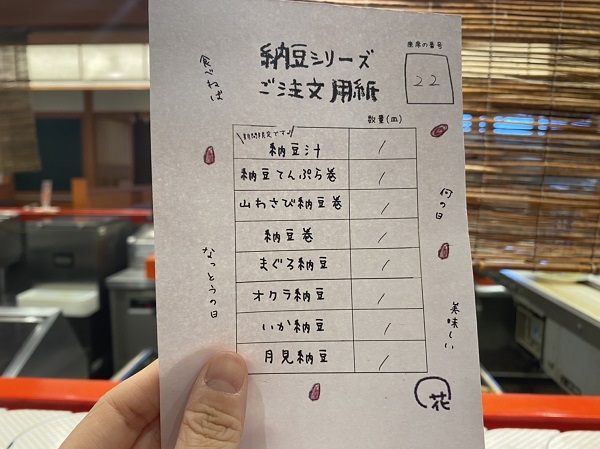 納豆シリーズ
ご注文用紙
座席の番号
22
食べねば
数量(皿)
期間限定ですッ
納豆汁 /
納豆てんぷら巻 /
山わさび納豆巻 /
納豆巻 /
まぐろ納豆 /
オクラ納豆 /
いか納豆 /
月見納豆 /
何の日
なっとうの日
美味しい
花